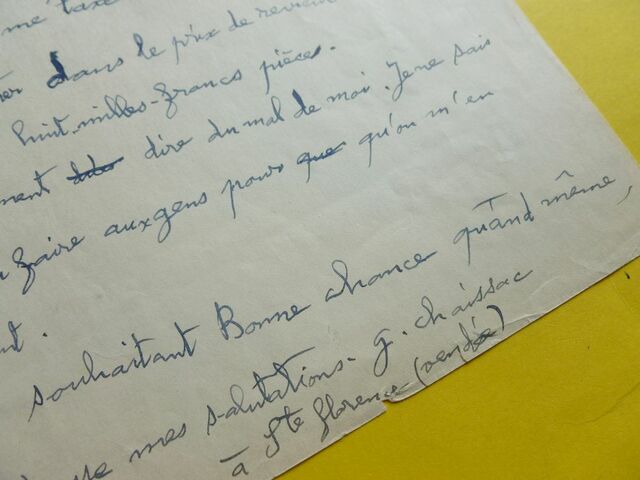 me taxe
dans le prix de revient
huit milles-francs pièces.
ment dire du mal de moi. Je ne sais
faire aux gens pour que qu'on m'en
nt.
souhaitant Bonne chance quand même,
mes salutations. G. Chaissac
à Ste Florence (vendée)